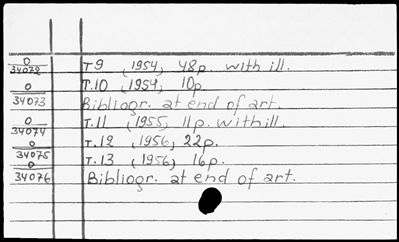 0
34072 T9 (1954) 48p. with ill.
0 T.10 (1954) 10p.
34073 Bibliogr. at end of art.
0
34074 T.11 (1955) 11p. with ill.
0
34075 T.12 (1956) 22p.
0 T.13 (1956) 16p.
34076 Bibliogr. at end of art.